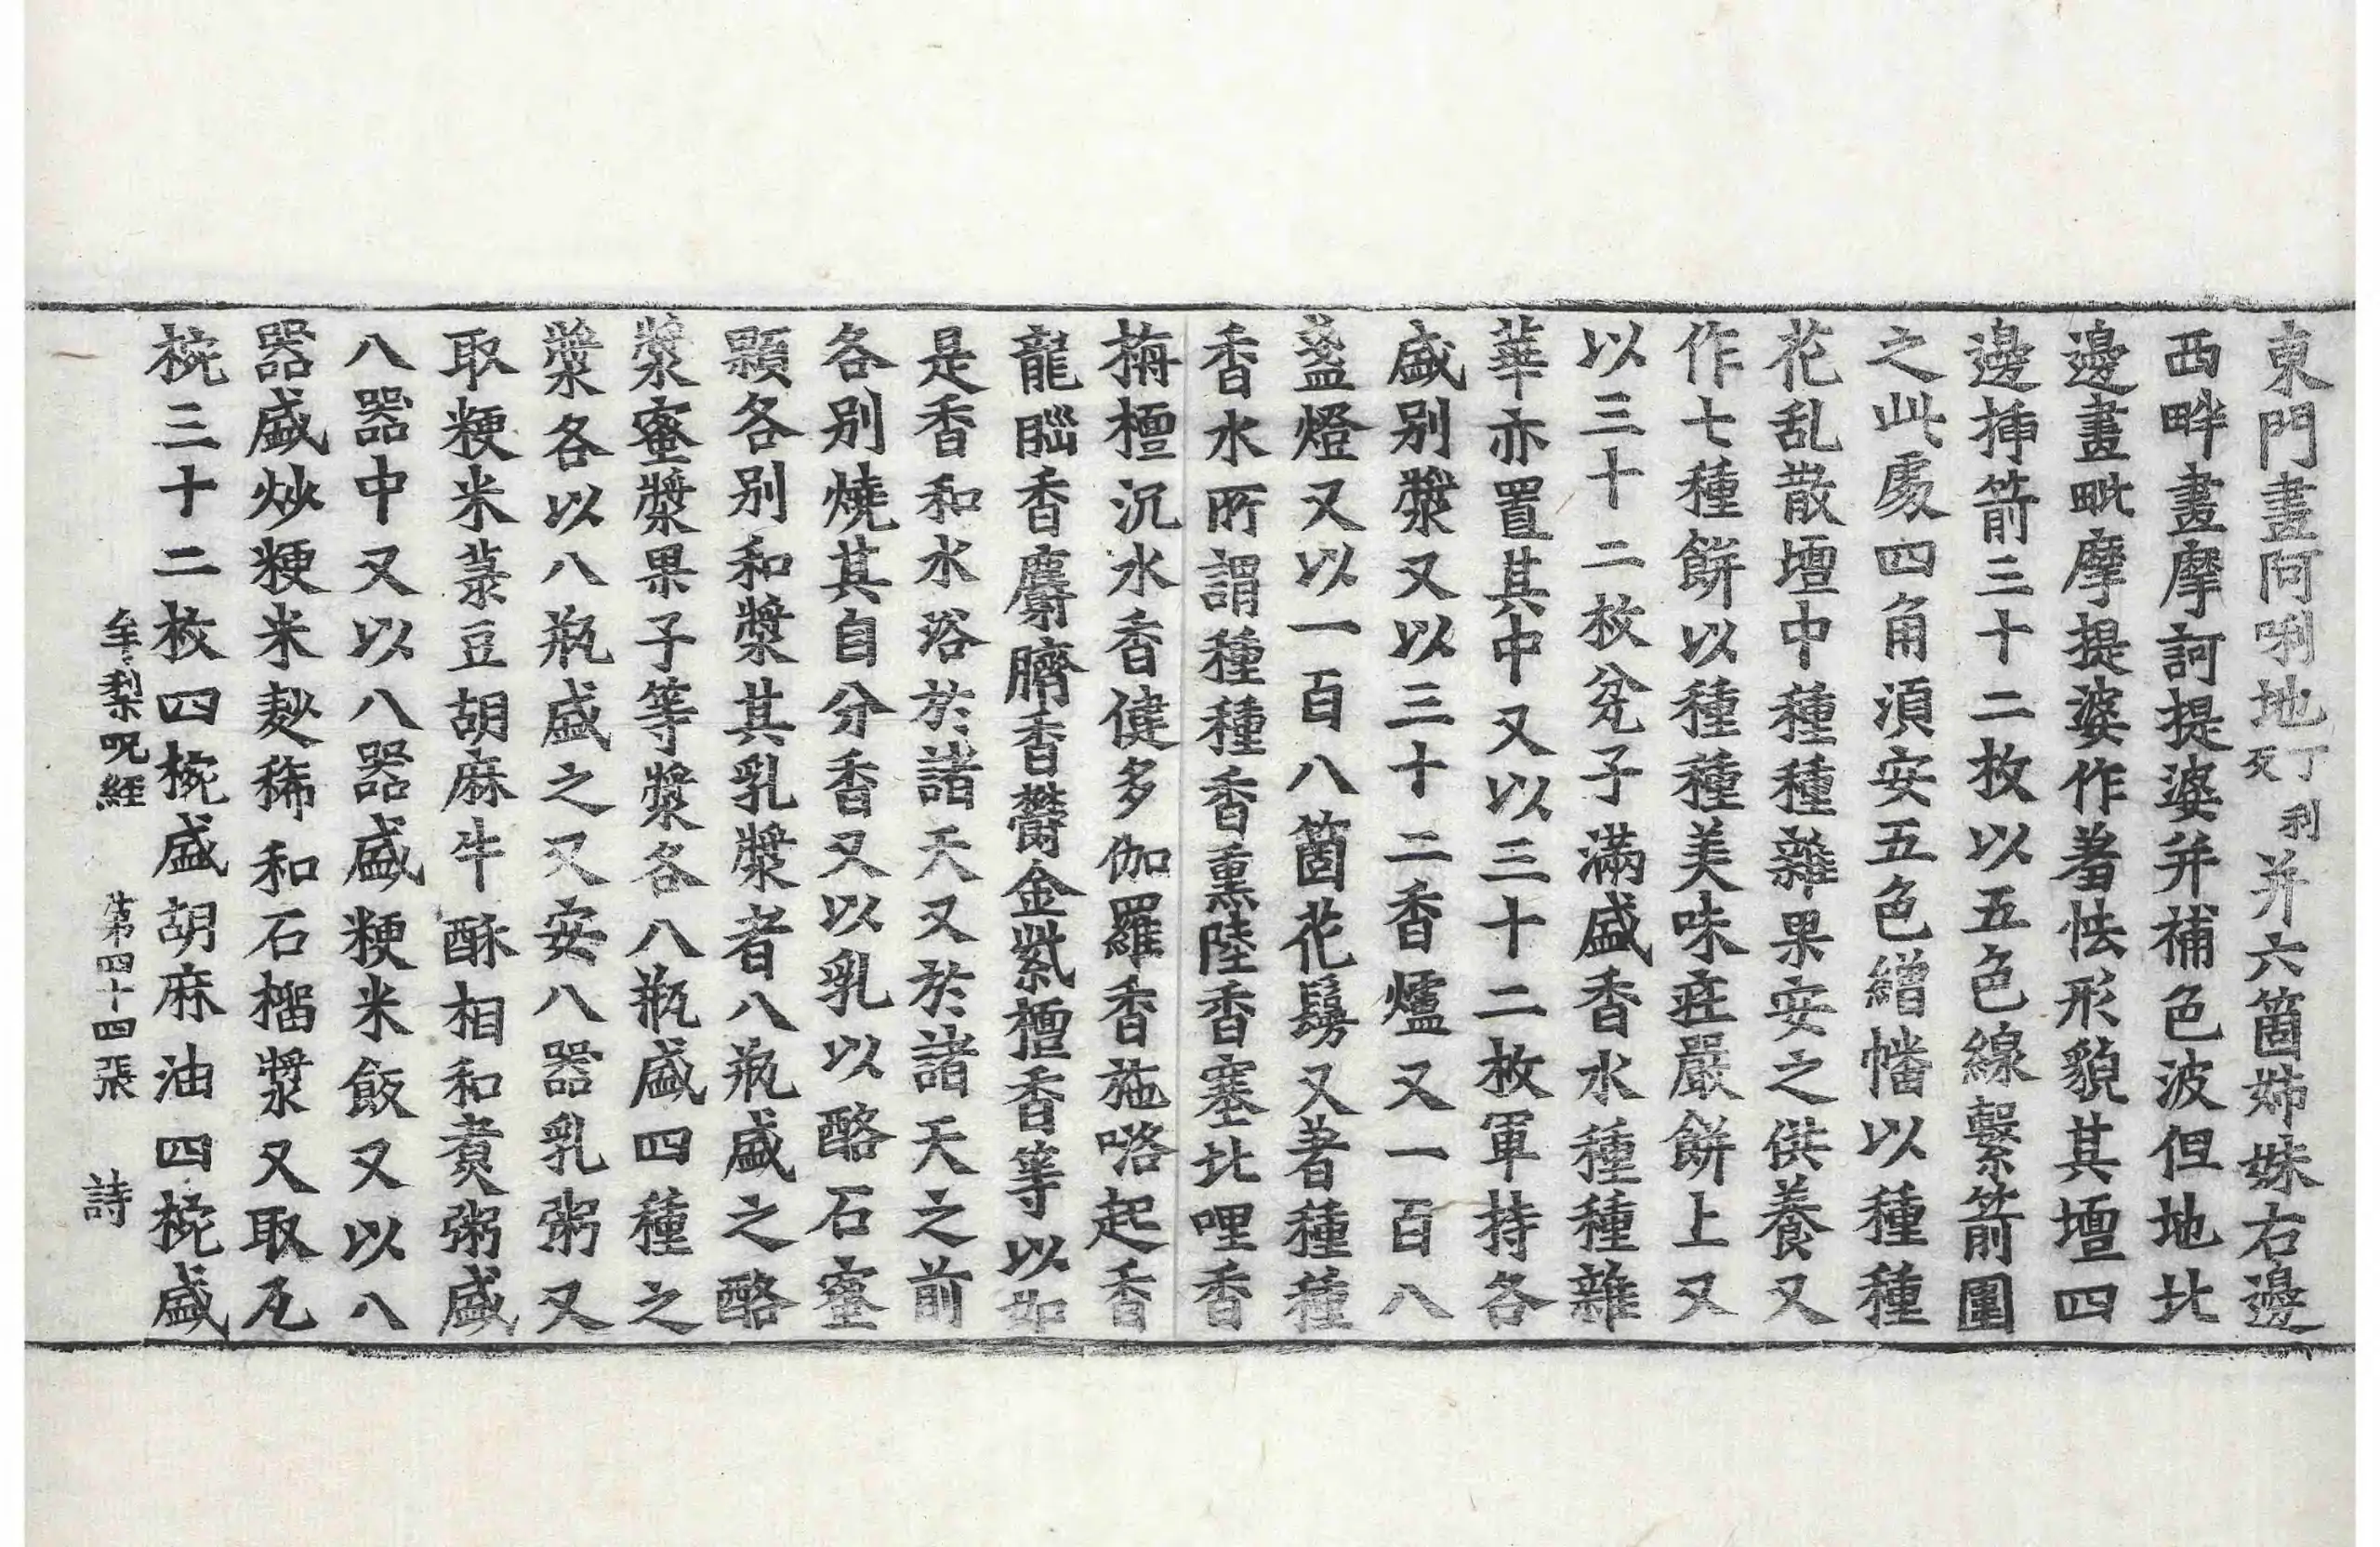 東門畫阿唎地丁利反并六箇姉妹右邊
西畔畫摩訶提婆并補色波但地北
邊畫毗摩提婆作羞怯形貌其壇四
邊揷箭三十二枚以五色線繫箭圍
之此處四角湏安五色繒幡以種種
花乱散壇中種種雜果安之供養又
作七種餅以種種美味莊嚴餅上又
以三十二枚瓫子滿盛香水種種雜
華亦置其中又以三十二枚軍持各
盛別漿又以三十二香爐又一百八
盞燈又以一百八箇花鬘又著種種
香水所謂種種香熏陸香塞比哩香
栴檀沉水香健多伽羅香施咯起香
龍腦香麝臍香欝金紫檀香等以如
是香和水浴於諸天又於諸天之前
各別燒其自分香又以乳以酪石蜜
顆各別和漿其乳漿者八瓶盛之酪
漿蜜漿果子等漿各八瓶盛四種之
漿各以八瓶盛之又安八器乳粥又
取粳米菉豆胡麻牛酥相和煮粥盛
八器中又以八器盛粳米飯又以八
器盛炒粳米麨稀和石榴漿又取瓦
椀三十二枚四椀盛胡麻油四椀盛
牟梨呪經 第四十四張 詩